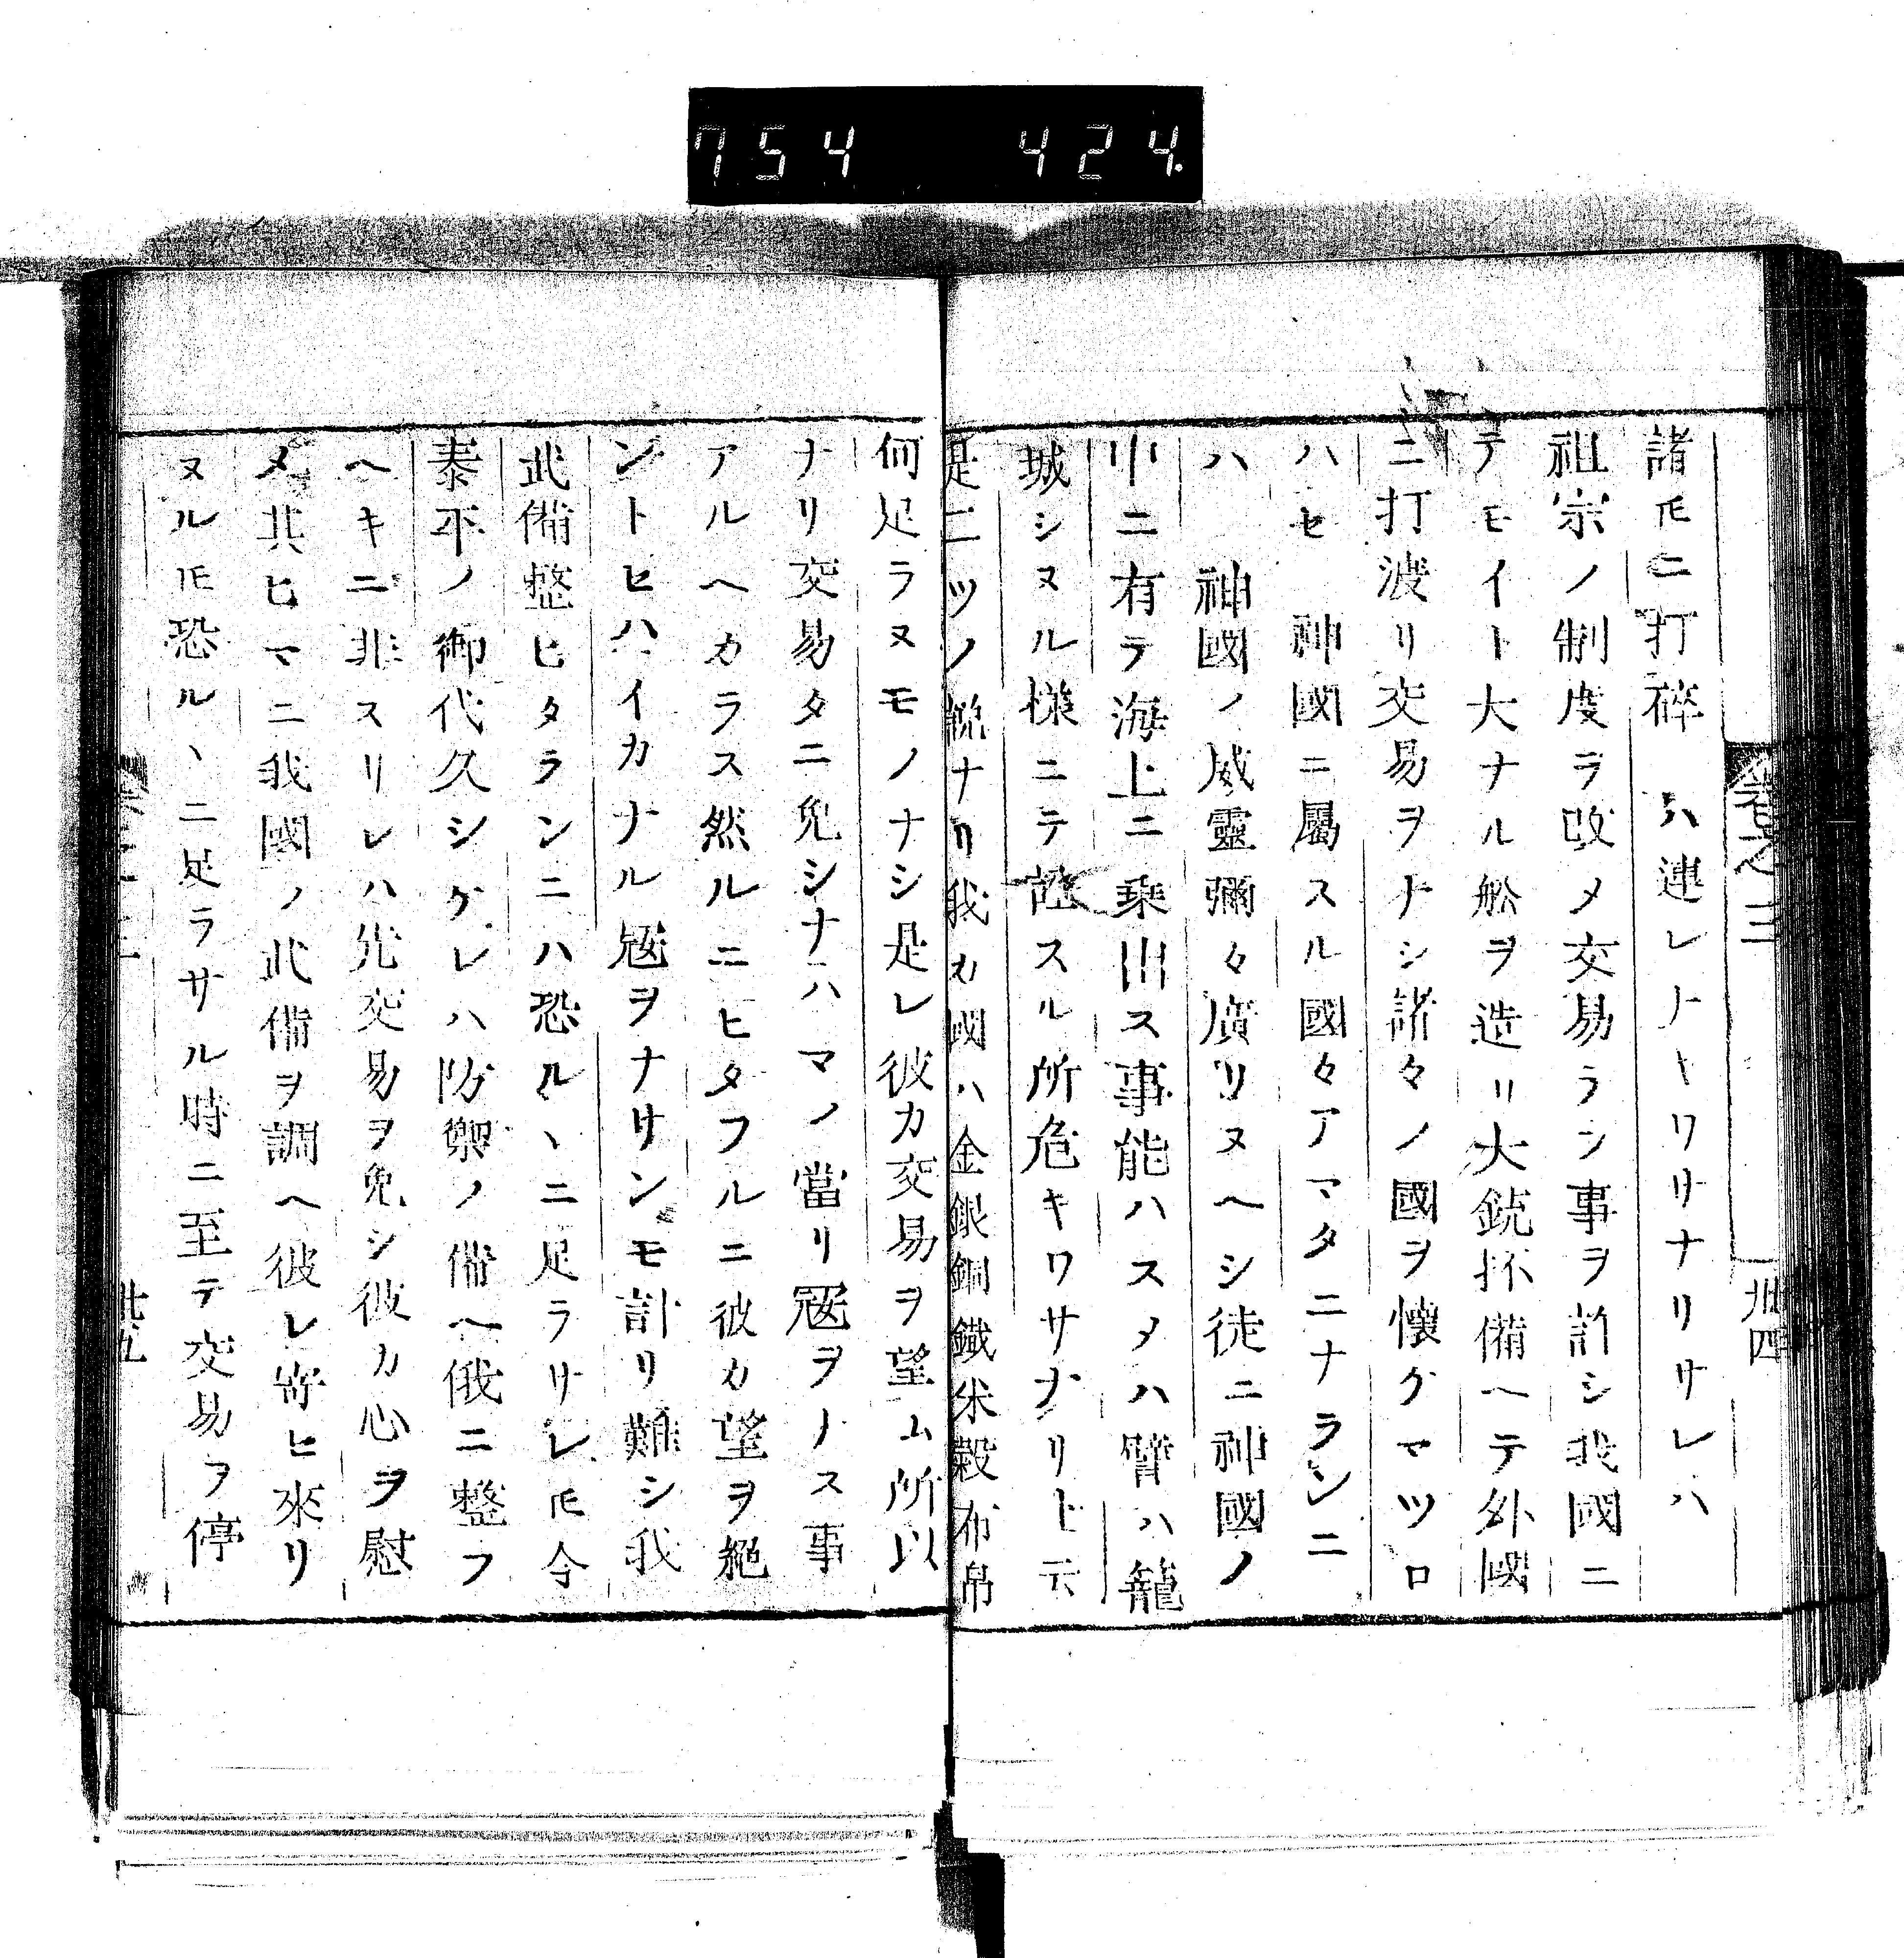 754 424.
卷之三 卅四
諸𪜈ニ打碎ハ連レナキワサナリサレハ
祖宗ノ制度ヲ改メ交易ラン事ヲ許シ我國ニ
テモイト大ナル舩ヲ造リ大銃抔備ヘテ外國
ニ打渡リ交易ヲナシ諸々ノ國ヲ懷ケマツロ
ハセ 神國ニ屬スル國々アマタニナランニ
ハ 神國ノ威靈彌々廣リヌヘシ徒ニ神國ノ
中ニ有テ海上ニ乘出ス事能ハスタハ臂ハ籠
城シヌル様ニテ スル所危キワサナリト云
是二ツノ説ナリ我カ國ハ金銀銅鐵米穀布帛
何足ラヌモノナシ是レ彼カ交易ヲ望ム所以
ナリ交易タニ免シナハマノ當リ冦ヲナス事
アルヘカラス然ルニヒタフルニ彼カ望ヲ絶
ントヒハイカナル冦ヲナサンモ計リ難シ我
武備整ヒタランニハ恐ルヽニ足ラサレ𪜈今
泰平ノ御代久シケレハ防禦ノ備ヘ俄ニ整フ
ヘキニ非スサレハ先交易ヲ免シ彼カ心ヲ慰
メ其ヒマニ我國ノ武備ヲ調ヘ彼レ寄ヒ來リ
ヌル𪜈恐ルヽニ足ラサル時ニ至テ交易ヲ停
卅五